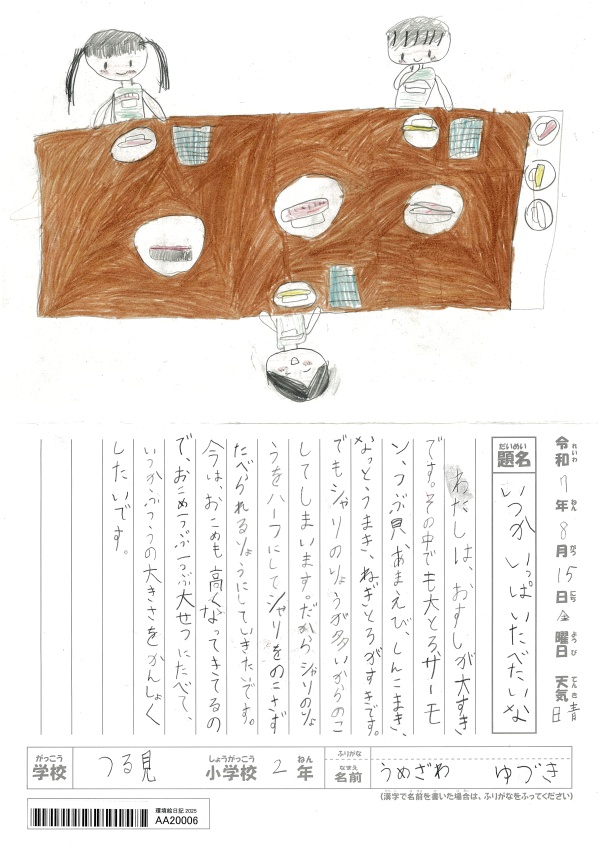 令和 7年 8月 15日 金曜日 天気 晴
れいわ ねん がつ にち ようび てんき
だいめい
題名 いつか いっぱいたべたいな
わたしは、おすしが大すき
です。その中でも大とろ、サーモ
ン、つぶ貝、あまえび、しんこまき、
なっとうまき、ねぎとろがすきです。
でもシャリのりょうが多いからのこ
してしまいます。だからシャリのりょ
うをハーフにしてシャリをのこさず
たべられるりょうにしていきたいです。
今は、おこめも高くなってきてるの
で、おこめ一つぶ一つぶ大せつにたべて、
いつかふつうの大きさをかんしょく
したいです。
がっこう しょうがっこう ねん ふりがな
学校 つる見 小学校 2年 なまえ 名前 うめざわ ゆづき
(漢字で名前を書いた場合は、ふりがなをふってください)
環境絵日記 2025
AA20006